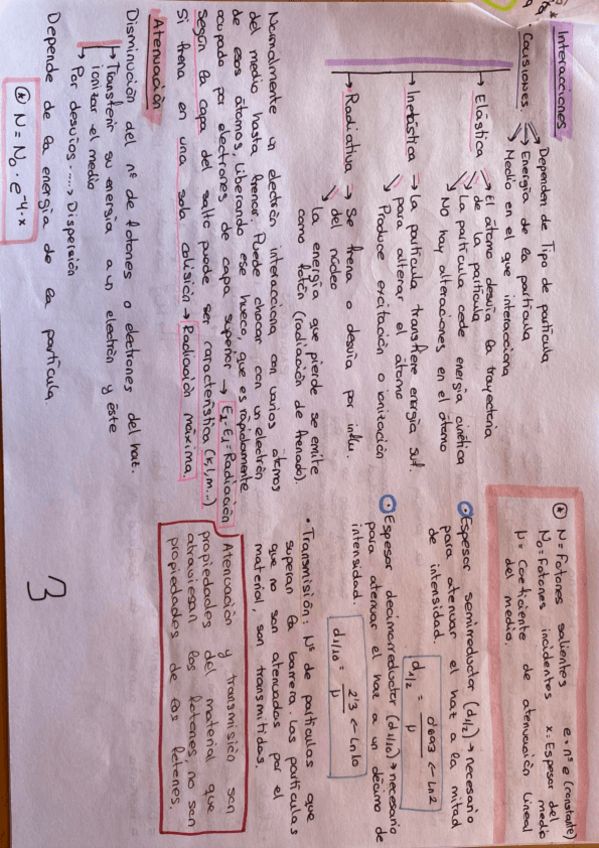 Interacciones
· Colisiones
Dependen de Tipo de partícula
Energía de la partícula
Medio en el que interacciona
→ Elástica → El átomo desvía la trayectoria
de la partícula
La partícula cede energía cinética
No hay alteraciones en el átomo
→ Inelástica → la partícula transfiere energía suf.
para alterar el átomo
Produce excitación o ionización
→ Radiativa → Se frena o desvía por influ.
del núcleo
la energía que pierde se emite
como fotón (radiación de frenado).
Normalmente un electrón interacciona con varios átomos
del medio hasta frenar. Puede chocar con un electrón
de esos átomos, liberando ese hueco, que es rápidamente
ocupado por electrones de capa superior → E₂-E₁=Radiación
Según la capa del salto puede ser característica (k,l,m...)
Si frena en una sola colisión → Radiación máxima.
Atenuación
Disminución del nº de fotones o electrones del haz.
→ Transferir su energía a un electrón y éste
ionizar el medio
→ Por desvíos ....> Dispersión
Depende de la energía de la partícula.
N = N₀ · e^-μ·x
N = Fotones salientes e = nº e (constante)
N₀ = Fotones incidentes x = Espesor del medio
μ = Coeficiente de atenuación lineal
del medio.
Espesor semirreductor (d1/2) → necesario
para atenuar el haz a la mitad
de intensidad.
d1/2 = 0'693 / μ ← Ln2
Espesor decimorreductor (d1/10) → necesario
para atenuar el haz a un décimo de
intensidad.
d1/10 = 2'3 / μ ← Ln10
• Transmisión: Nº de partículas que
superan la barrera. Las partículas
que no son atenuadas por el
material, son transmitidas.
Atenuación y transmisión son
propiedades del material que
atraviesan los fotones, no son
propiedades de los fotones.
3